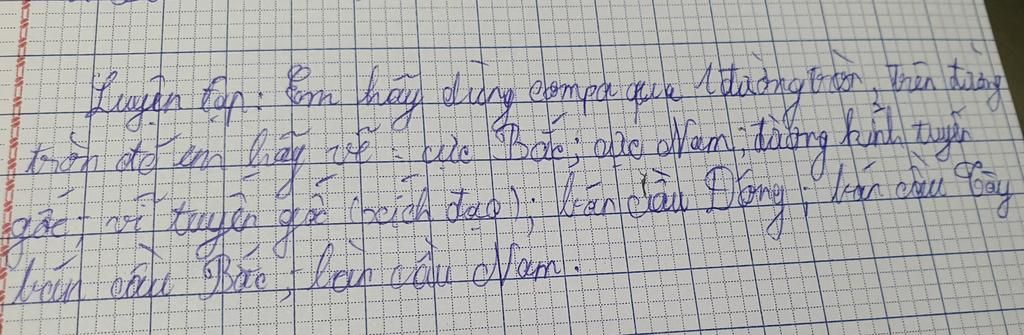 Luyện tập: Em hãy dùng compa qua 1 đường tròn, Trên đường
tròn đó em hãy vẽ: cực Bắc; cực Nam; đường kinh tuyến
gốc, vĩ tuyến gốc (xích đạo); bán cầu Đông; bán cầu Tây
bán cầu Bắc, bán cầu Nam.